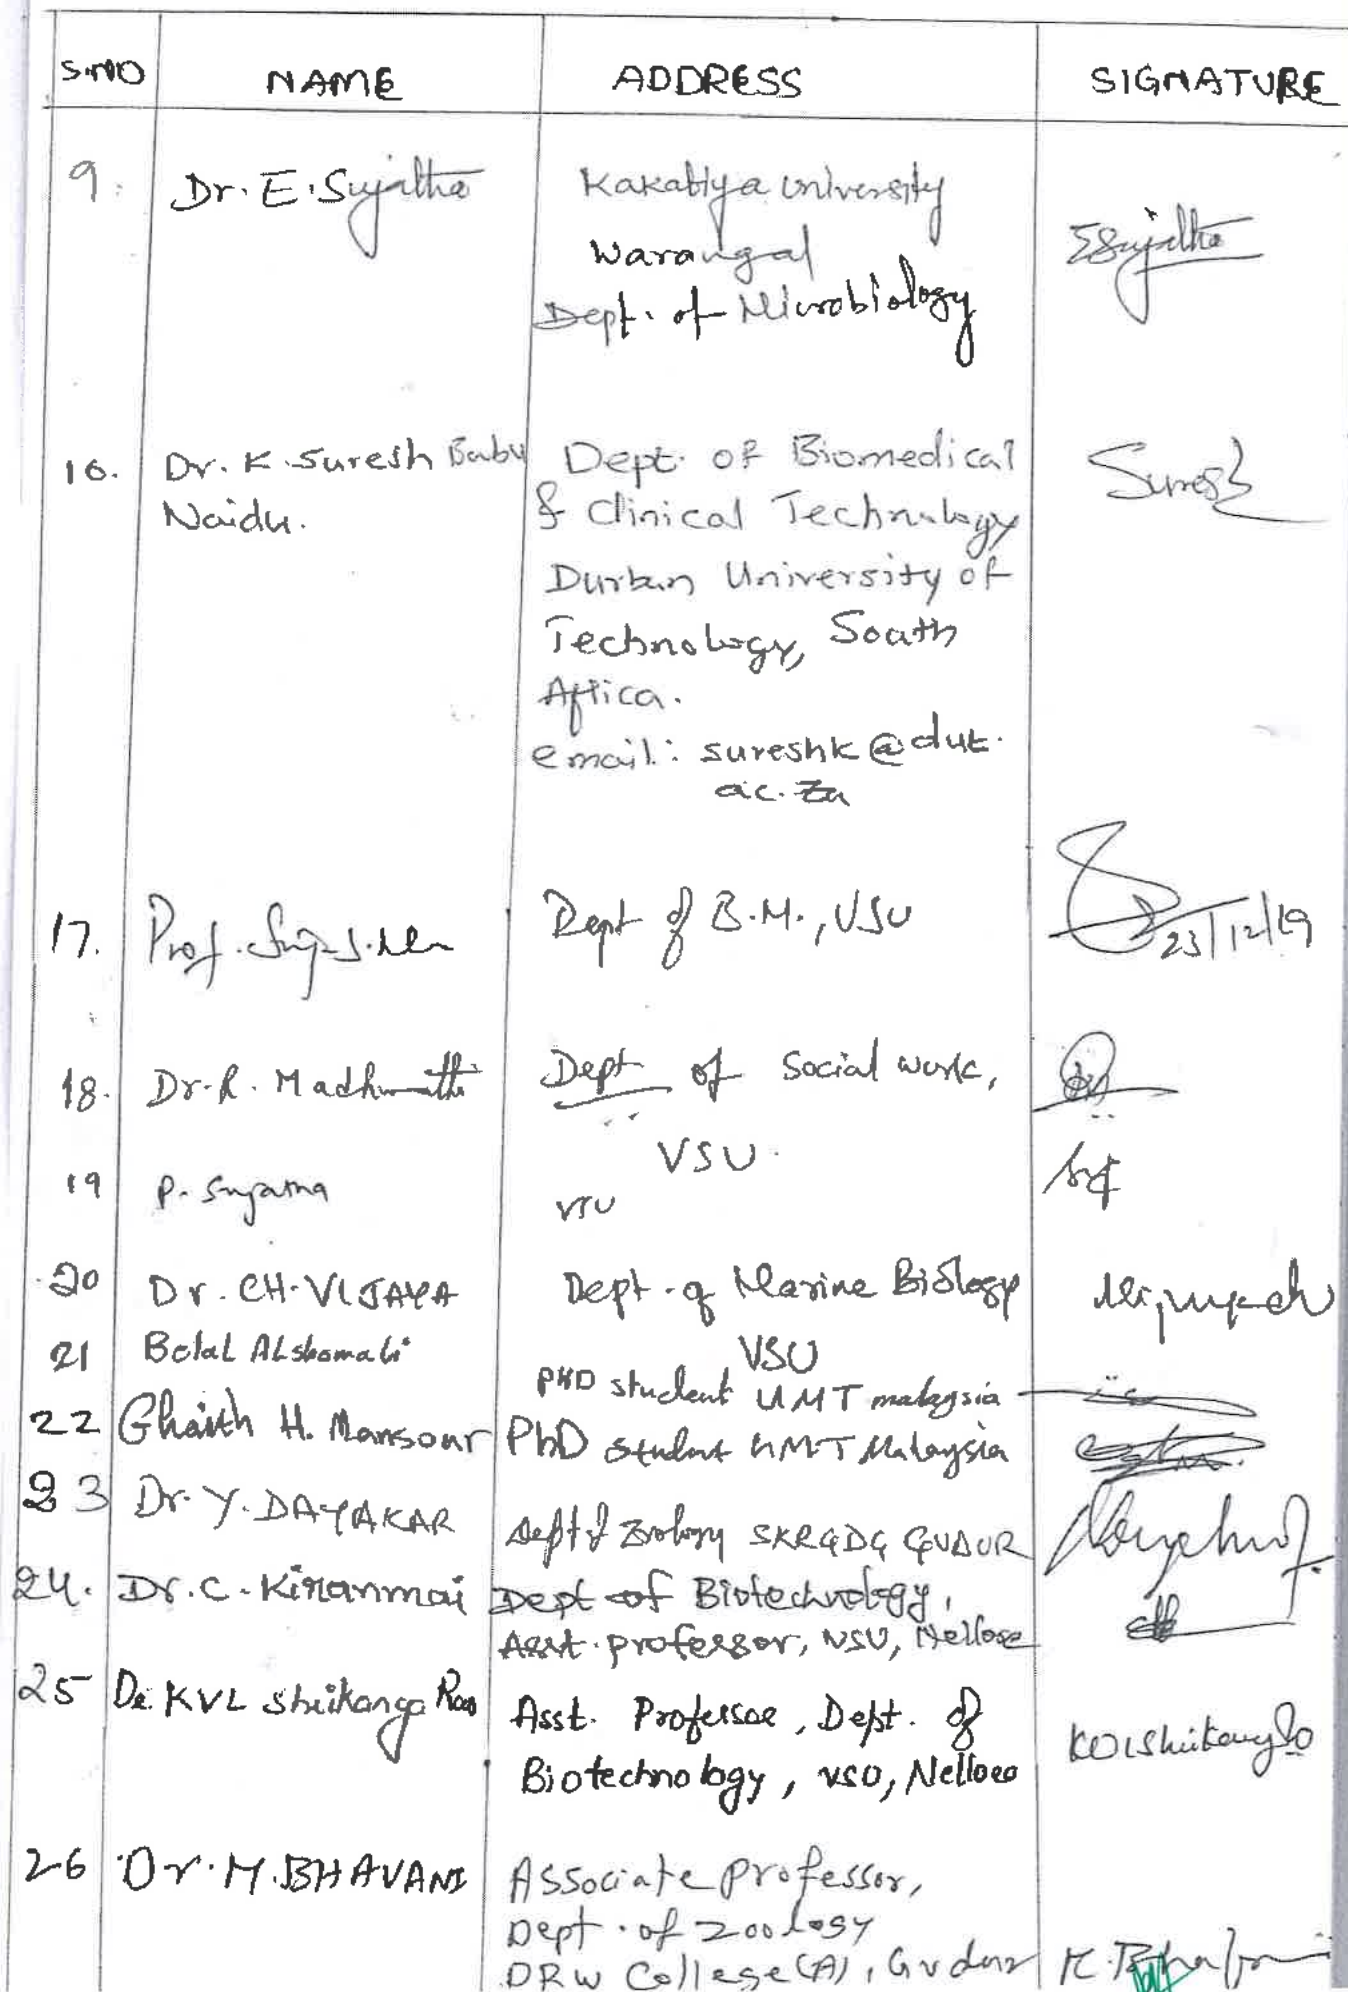 S.NO NAME ADDRESS SIGNATURE
9. Dr. E. Sujatha Kakatiya University
Warangal
Dept. of Microbiology
ESujatha
16. Dr. K. Suresh Babu Dept. of Biomedical
Naidu. & Clinical Technology
Durban University of
Technology, South
Africa.
email: sureshk@dut.
ac.za
Suresh
17. Prof. Dept of B.M., VSU
23/12/19
18. Dr. R. Madhumathi Dept of Social work,
VSU.
19 P. Sujatha VSU
20 Dr. CH. VIJAYA Dept. of Marine Biology
VSU
21 Belal ALshomali PHD student UMT malaysia
22 Ghaith H. Mansour PhD student UMT Malaysia
23 Dr. Y. DAYAKAR Dept of Zoology SKRGDG GUDUR
24. Dr. C. Kiranmai Dept of Biotechnology,
Asst. professor, VSU, Nellore
25 Dr. KVL Shrikanya Rao Asst. Professor, Dept. of
Biotechnology, VSU, Nellore
26 Dr. M. BHAVANI Associate professor,
Dept. of Zoology
DRW College(A), Gudur